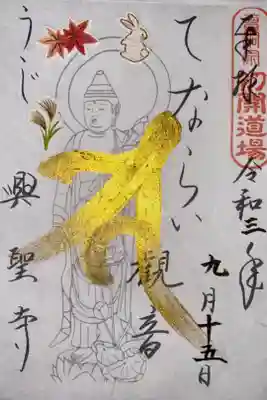 奉拝
初開道場
令和三年
九月十五日
てならい
観音
うじ
興聖寺